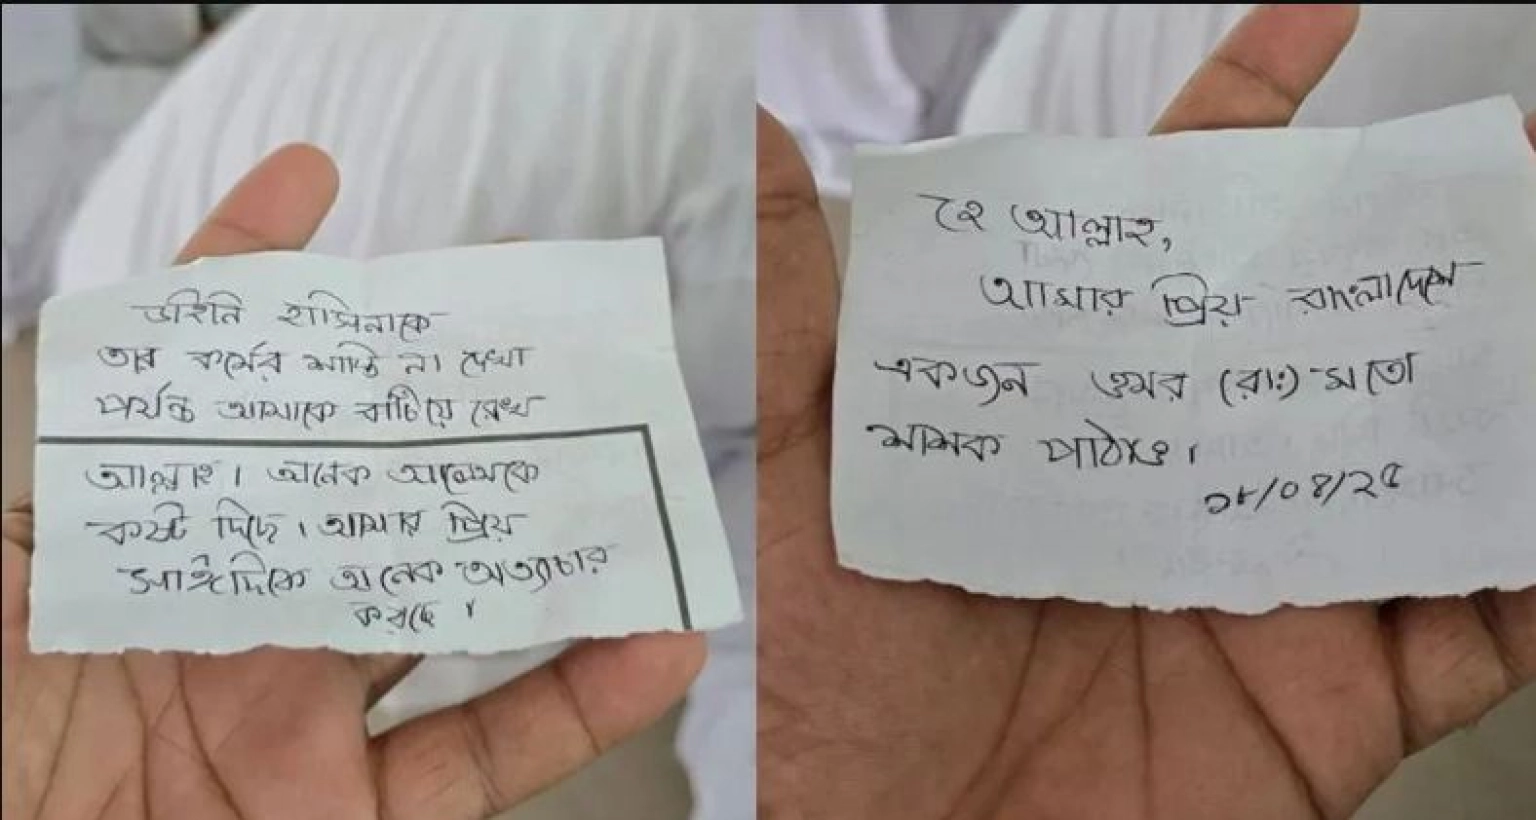 ডাইনি হাসিনাকে
তার কর্মের শাস্তি না দেখা
পর্যন্ত আমাকে বাঁচিয়ে রেখ
আল্লাহ। অনেক আলেমকে
কষ্ট দিছে। আমার প্রিয়
সাঈদিকে অনেক অত্যাচার
করছে।
হে আল্লাহ,
আমার প্রিয় বাংলাদেশে
একজন ওমর (রাঃ)-মতো
শাসক পাঠাও।
১৮/০৪/২৫